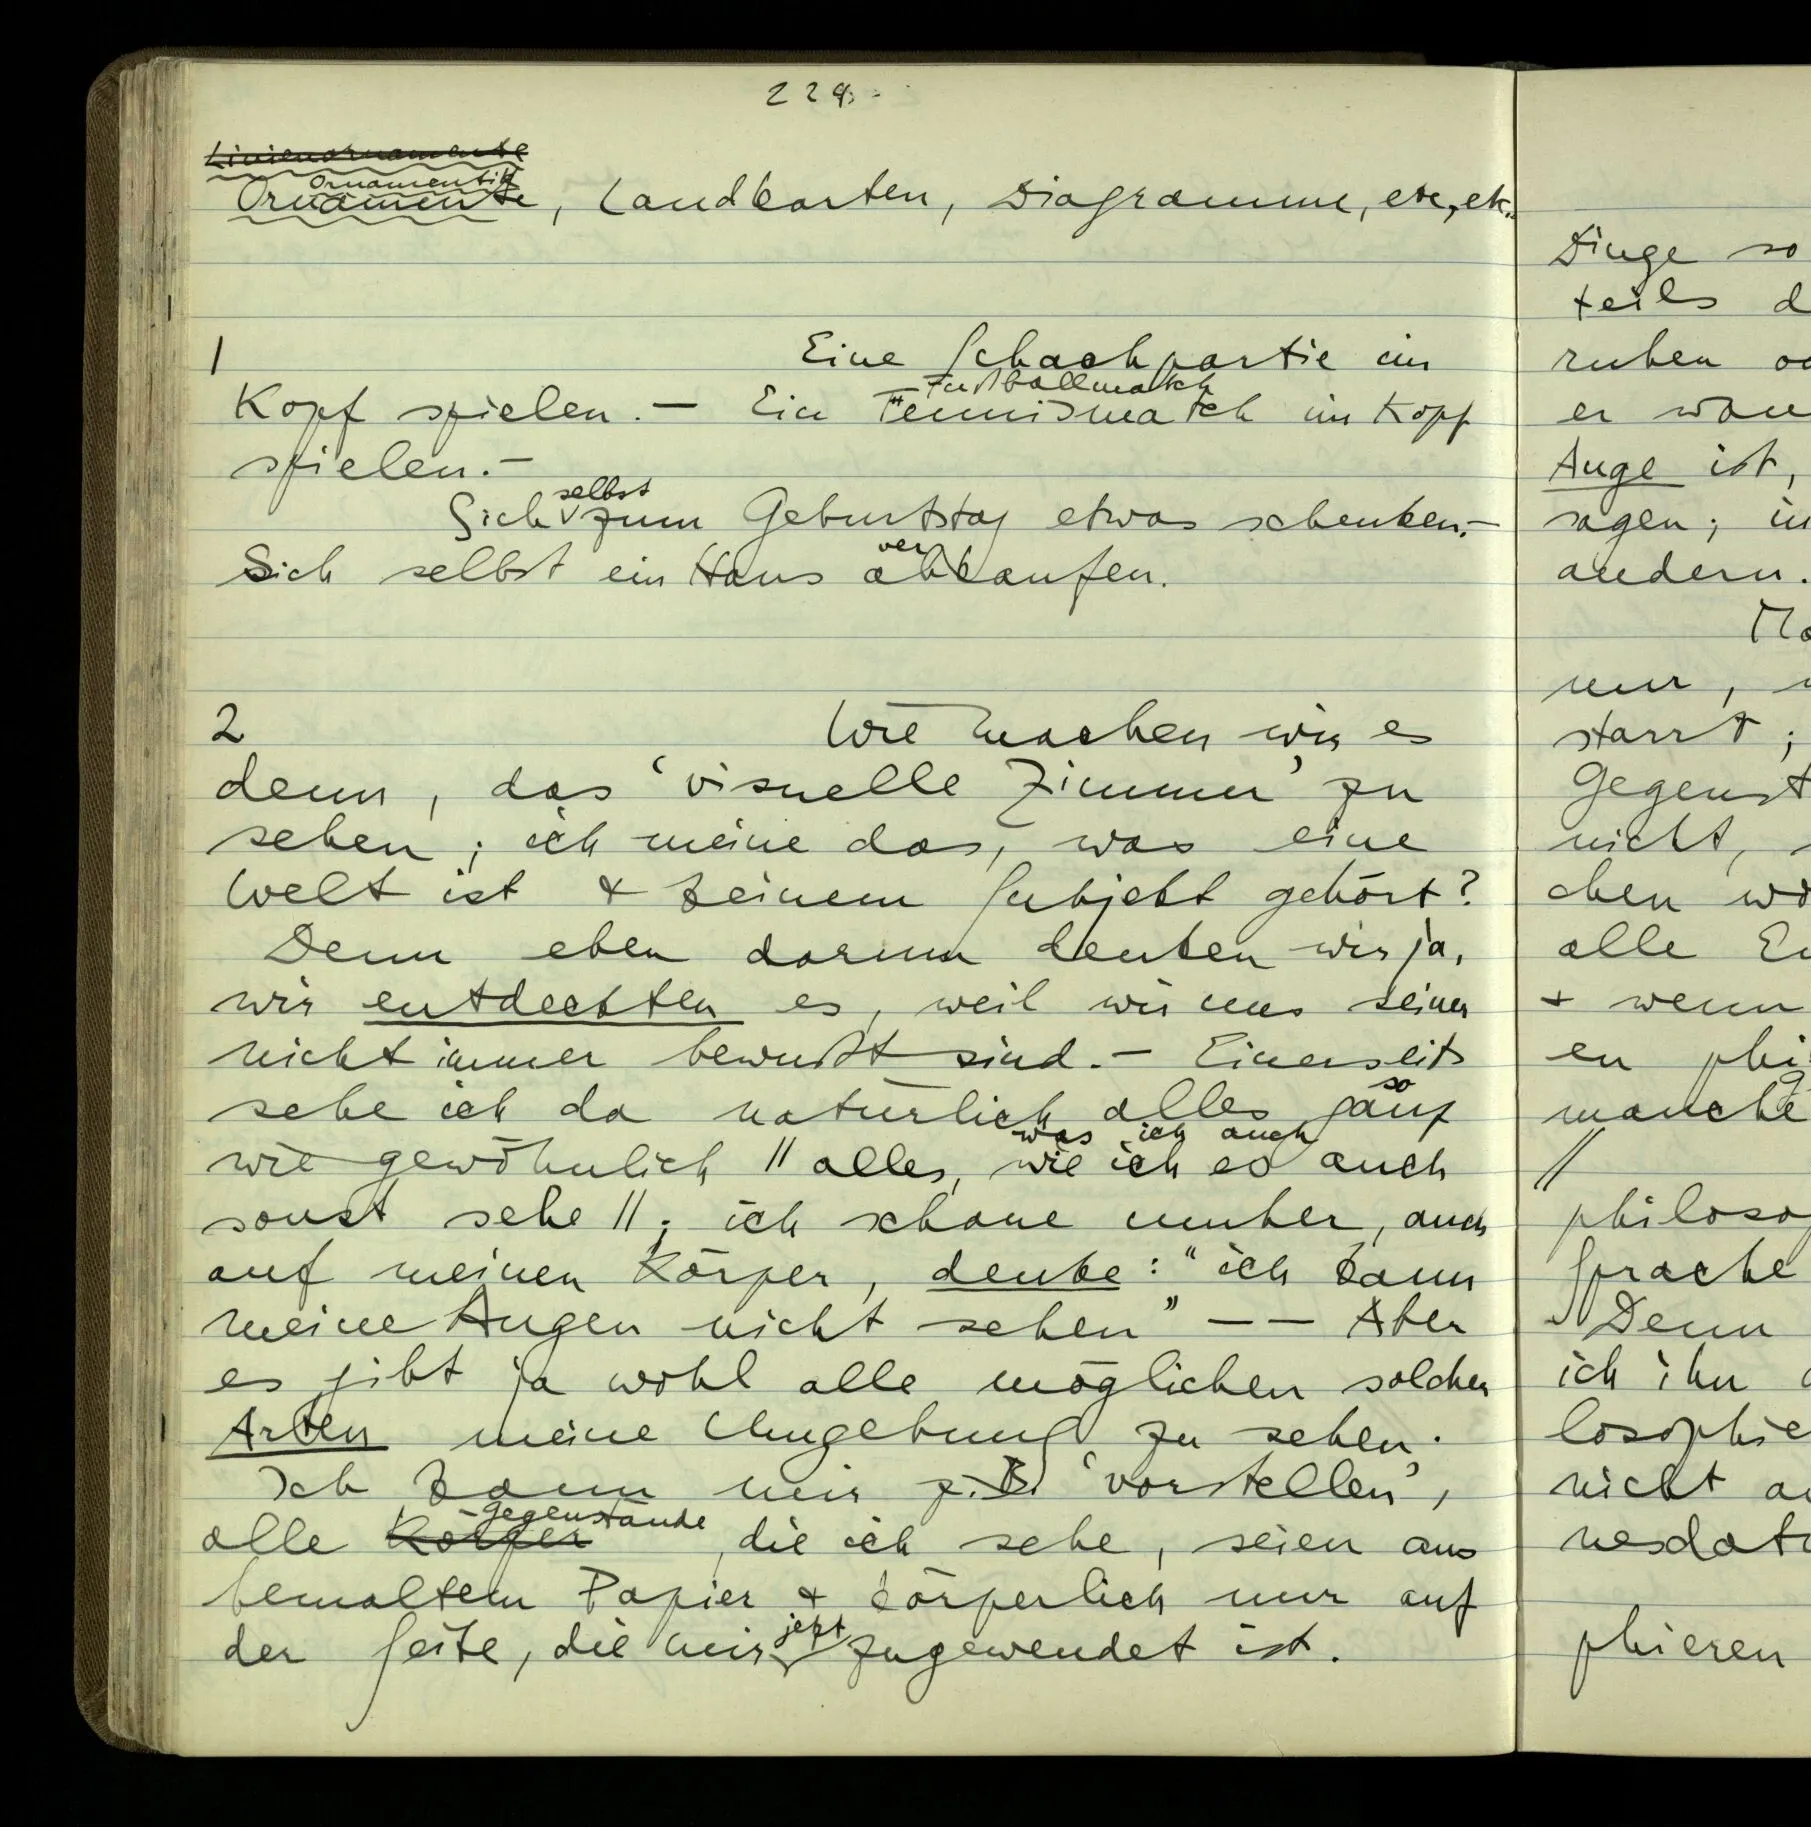 228.
Linienornamente
Ornamentik
Ornamente, Landkarten, Diagramme, etc, etc.
1
Eine Schachpartie im
Fußballmatch
Kopf spielen. – Ein Tennismatch im Kopf
spielen. –
selbst
Sich zum Geburtstag etwas schenken. –
ver
Sich selbst ein Haus abkaufen.
2
Wie machen wir es
denn, das ‘visuelle Zimmer’ zu
sehen; ich meine das, was eine
Welt ist & keinem Subjekt gehört?
Denn eben darum denken wir ja,
wir entdeckten es, weil wir uns seiner
nicht immer bewußt sind. – Einerseits
so
sehe ich da natürlich alles ganz
was ich auch
wie gewöhnlich // alles, wie ich es auch
sonst sehe //; ich schaue umher, auch
auf meinen Körper, denke: “ich kann
meine Augen nicht sehen” – – Aber
es gibt ja wohl alle möglichen solchen
Arten meine Umgebung zu sehen.
Ich kann mir z.B. ‘vorstellen’,
Gegenstände
alle Körper, die ich sehe, seien aus
bemaltem Papier & körperlich nur auf
jetzt
der Seite, die mir zugewendet ist.
Dinge so
teils d
ruhen od
er wan
Auge ist,
sagen; in
andern.
Ma
nur,
starrt;
Gegenst
nicht,
chen wo
alle En
& wenn
en phi
manche
//
philosop
Sprache
Denn
ich ihn
losophie
nicht a
nesdat
phieren